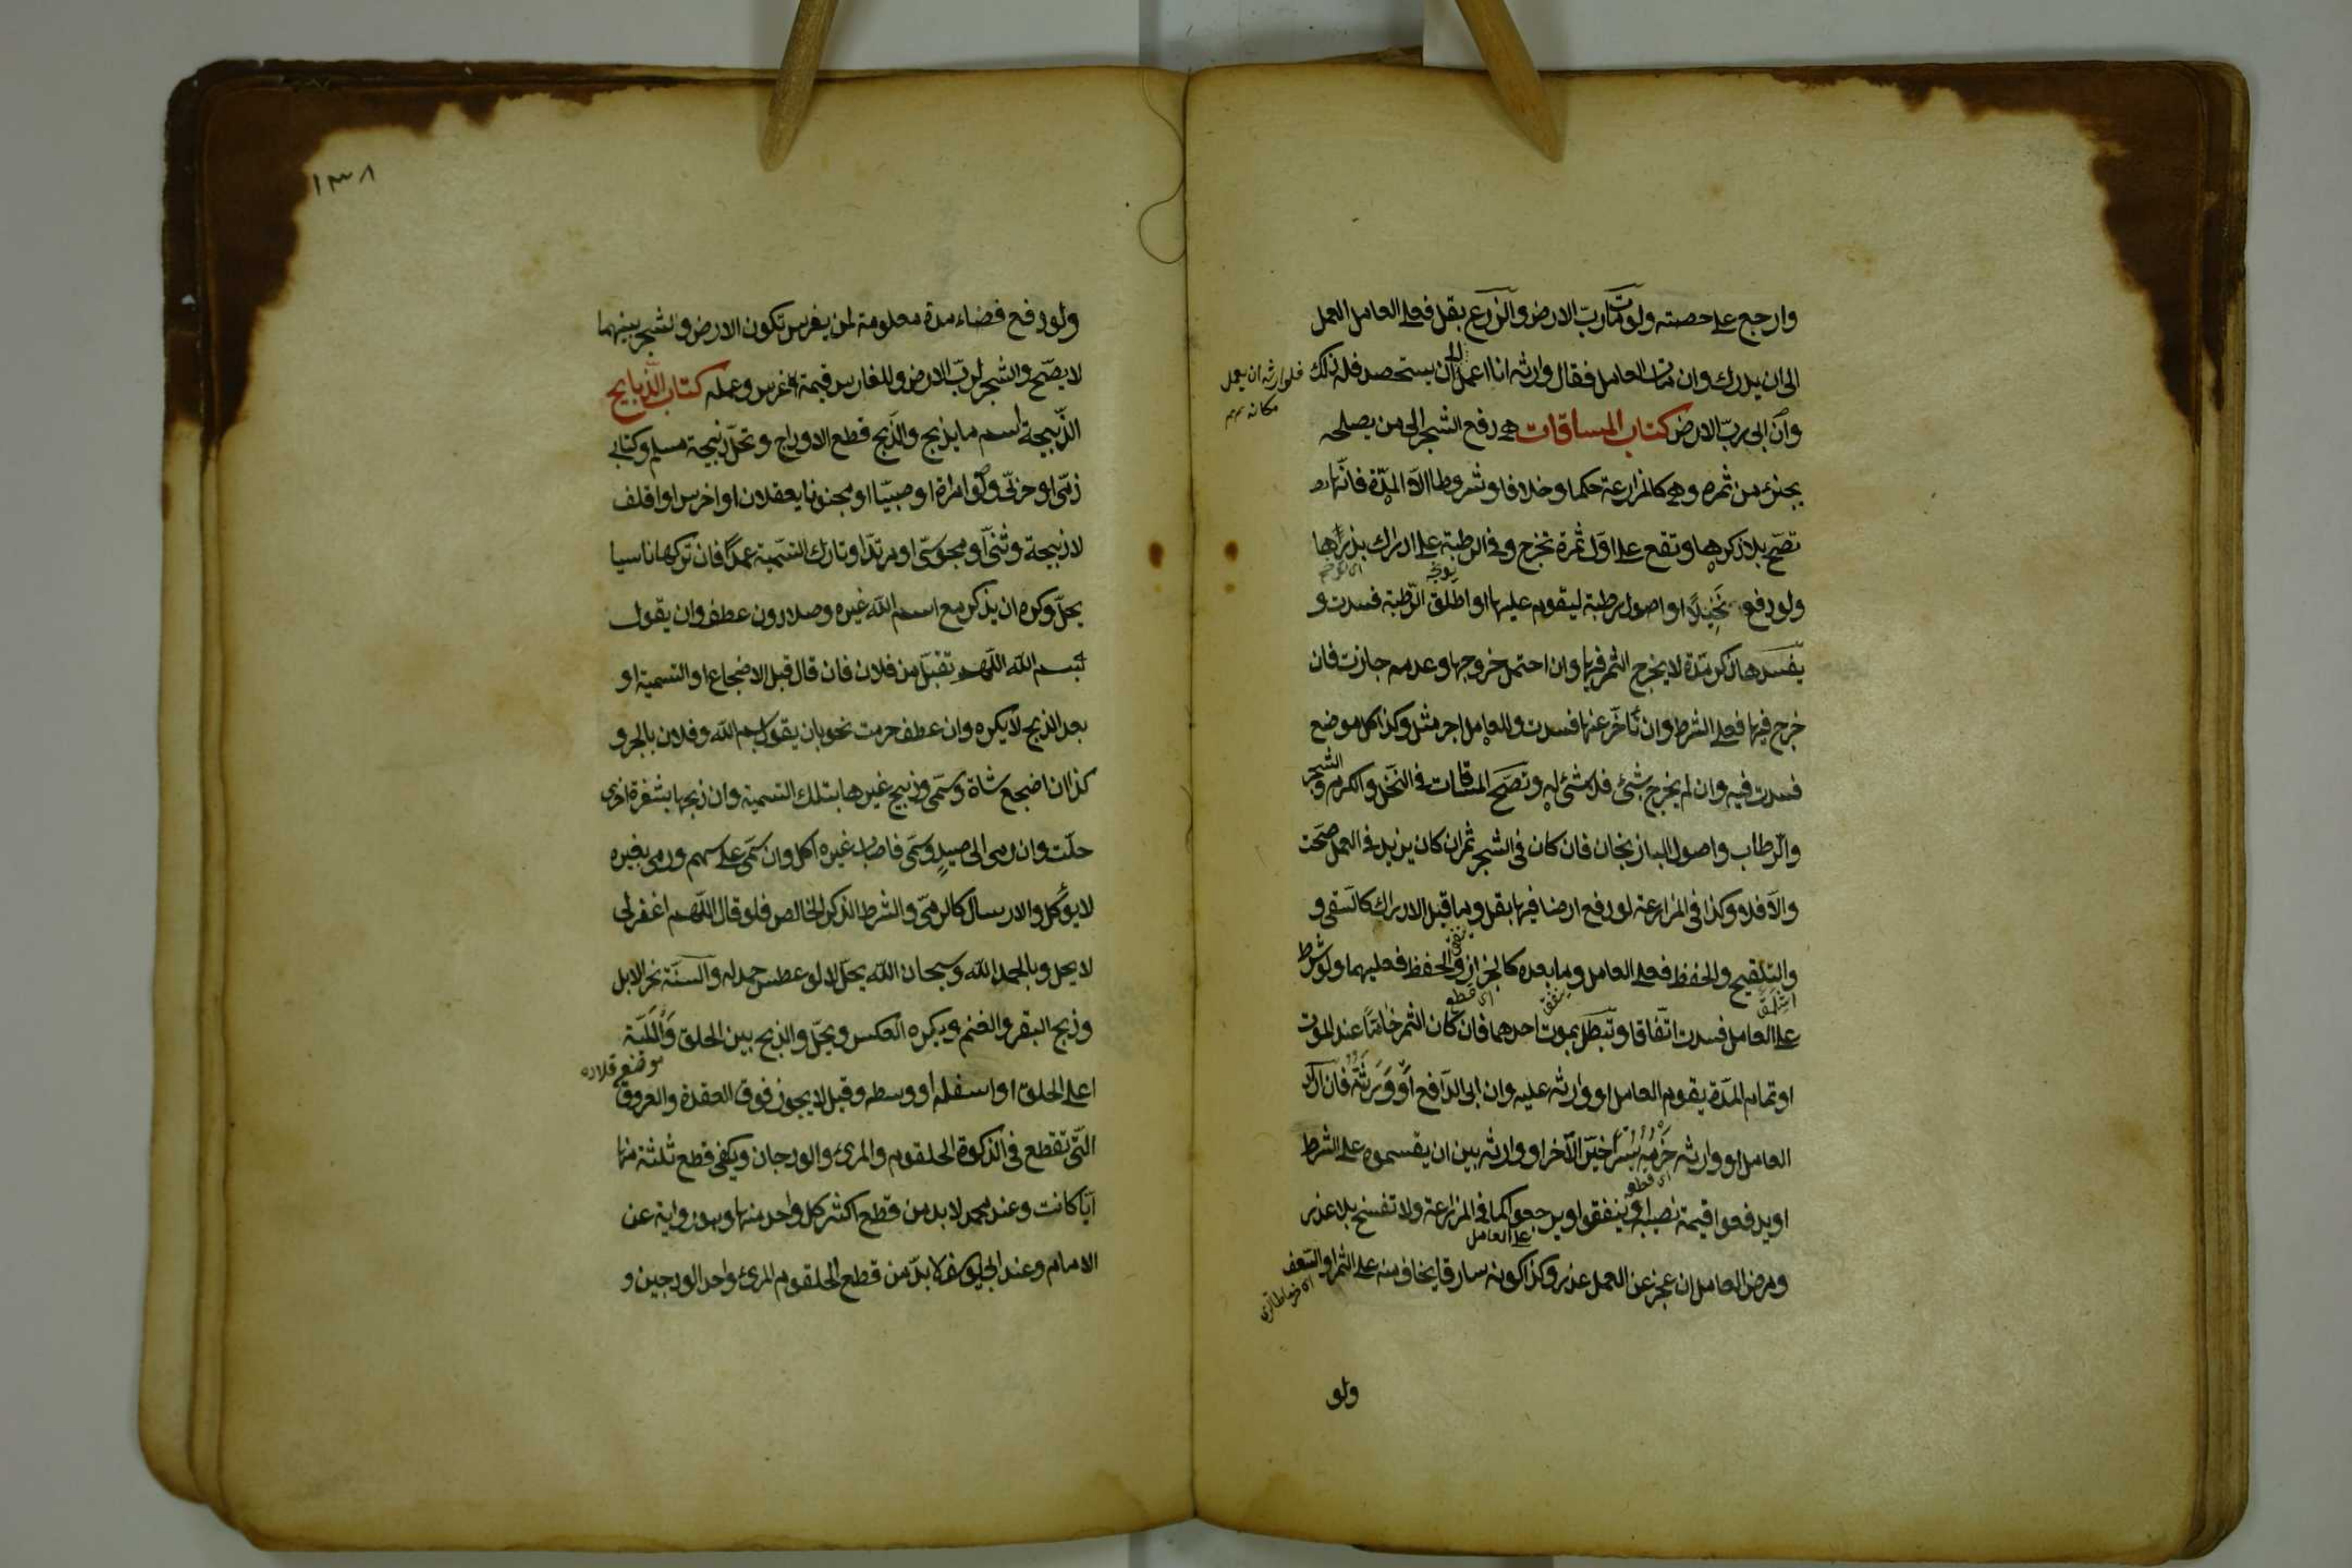 وارجع على حصته ولو مات رب الارض والزرع بقل فعلى العامل العمل
الى ان يدرك وان مات العامل فقال وارثه انا اعمل الى ان يستحصد فله ذلك
فلوارثه ان يعمل
مكانه
وان ابى رب الارض كتاب المساقات هى دفع الشجر الى من يصلحه
بجزء من ثمره وهى كالمزارعة حكما وخلافا وشروطا الا المدّة فانها
تصح بلا ذكرها وتقع على اول ثمرة تخرج وفى الرطبة على ادراك بذرها
ولو دفع نخيلا او اصول رطبة ليقوم عليها او اطلق الرّطبة فسدت و
يفسدها ذكر مدّة لا يخرج الثمر فيها وان احتمل خروجها وعدمه جازت فان
خرج فيها فعلى الشرط وان تأخر عنها فسدت وللعامل اجر مثله وكذا كل موضع
فسدت فيه وان لم يخرج شئ فلا شئ له وتصح المساقات فى النخل والكرم والشجر
والرطاب واصول الباذنجان فان كان فى الشجر ثمر ان كان يزيد فى العمل صحت
والا فلا وكذا فى المزارعة لو دفع ارضا فيها بقل وما قبل الادراك كالسقى و
والتلقيح والحفظ فعلى العامل وما بعده كالجزاز والحفظ فعليهما ولو شرط
على العامل فسدت اتّفاقا وتبطل بموت احدهما فان كان الثمر خامًا عند الموت
او تمام المدّة يقوم العامل او وارثه عليه وان ابى الدافع او ورثته فان اراد
العامل او وارثه خرمه بسرا خيّر الآخر او وارثه بين ان يقسموه على الشرط
او يدفعوا قيمة نصيبه او ينفقوا ويرجعوا كما فى المزارعة ولا تفسخ بلا عذر
ومرض العامل ان عجز عن العمل عذر وكذا كونه سارقا يخاف منه على الثمر او السعف
ولو
١٣٨
ولو دفع فضاء مدة معلومة لمن يغرس تكون الارض والشجر بينهما
لا يصحّ والشجر لربّ الارض وللغارس قيمة غرس وعمله كتاب الذبايح
الذّبيحة اسم ما يذبح والذّبح قطع الاوداج وتحلّ ذبيحة مسلم وكتابى
ذمّى او حربى ولو امراة او صبيّا او مجنونا يعقلان او اخرس او اقلف
لا ذبيحة وثنى او مجوسى او مرتدّ او تارك التسمية عمدًا فان تركها ناسيا
يحلّ وكره ان يذكر مع اسم الله غيره وصلا دون عطف وان يقول
بسم الله اللّهم تقبّل من فلان فان قال قبل الاضجاع او التسمية او
بعد الذبح لا يكره وان عطف حرمت نحو بان يقول بسم الله وفلان بالجر و
كذا ان اضجع شاة وسمّى وذبح غيرها بتلك التسمية وان ذبحها بشفرة اخرى
حلّت وان رمى الى صيد وسمّى فاصاب غيره اكل وان سمّى على سهم ورمى بغيره
لا يؤكل والارسال كالرمى والشرط الذكر الخالص فلو قال اللّهم اغفر لى
لا يحل وبالحمد لله وسبحان الله يحلّ لا لو عطس حمد له والسنّة نحر الابل
وذبح البقر والغنم ويكره العكس ويحلّ والذبح بين الحلق واللّبّة
موضع قلاده
اعلى الحلق او اسفله او وسطه وقيل لا يجوز فوق العقدة والعروق
التى تقطع فى الذكوة الحلقوم والمرئ والودجان ويكفى قطع ثلثة منها
ايّا كانت وعند محمد لا بد من قطع اكثر كل واحد منها وهو رواية عن
الامام وعند ابى يوسف لا بدّ من قطع الحلقوم المرئ واحد الودجين و